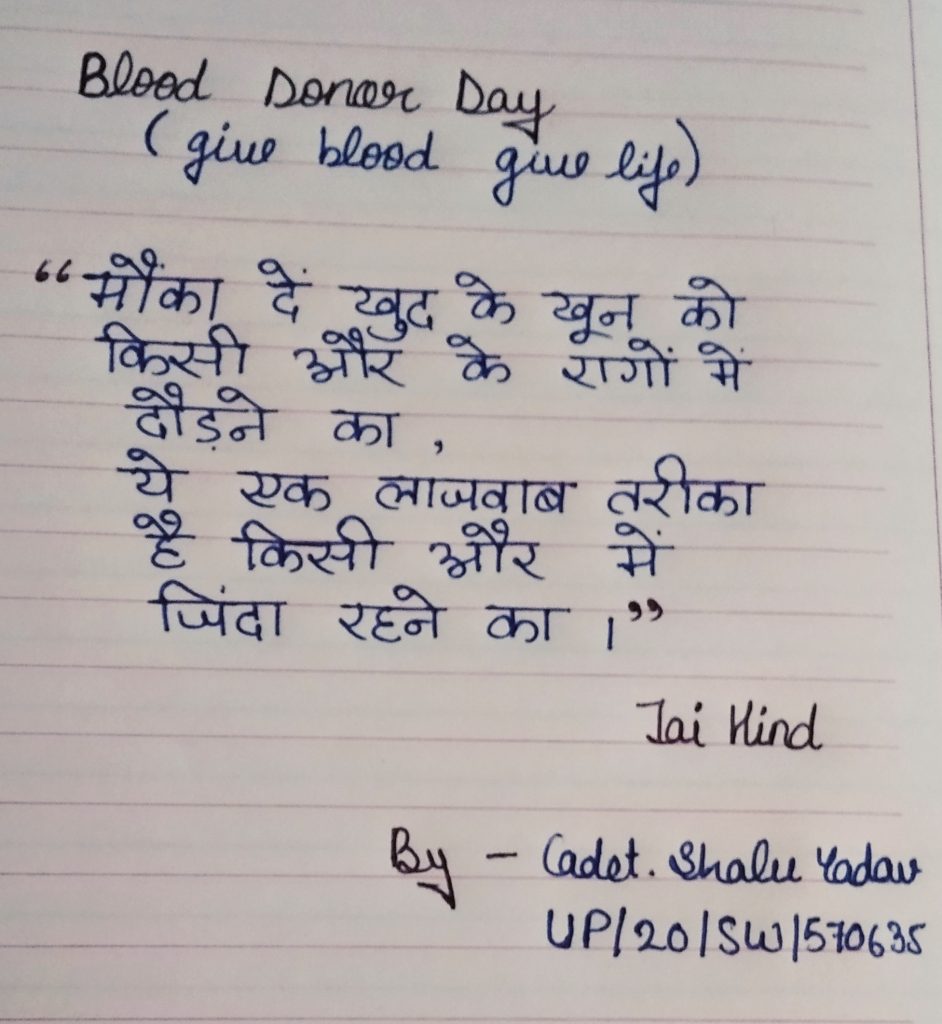 Blood Donor Day
(give blood give life)
“ मौंका दें खुद के खून को
किसी और के रागों में
दौड़ने का ,
ये एक लाजवाब तरीका
है किसी और में
जिंदा रहने का ।”
Jai Hind
By - Cadet. Shalu Yadav
UP/20/SW/570635